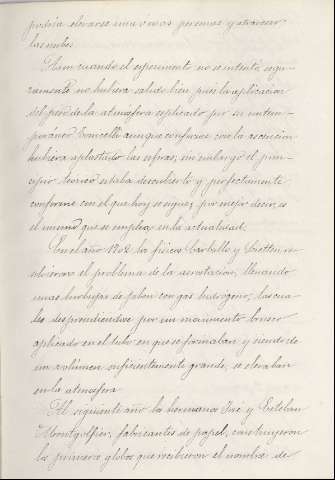 podria elevarse una ó varias personas y atravesar
las nubes.
Aun cuando el esperimento no se intentó segu-
ramente no hubiera salido bien pues la esplicacion
del peso de la atmósfera esplicado por su contem-
poraneo Torricelli aunque conforme con la ascension
hubiera aplastado las esferas; sin embargo el prin-
cipio teorico estaba descubierto y perfectamente
conforme con el que hoy se sigue, por mejor decir, es
el mismo que se emplea en la actualidad.
En el año 1782 los fisicos Carballo y
solvieron el problema de la aerostacion, llenando
unas burbujas de jabon con gas hidrogeno, las cua-
les desprendiendose por un movimiento brusco
aplicado en el tubo en que se formaban y siendo de
un volúmen suficientemente grande, se elevaban
en la atmósfera.
Al siguiente año los hermanos José y Esteban
Montgolfier, fabricantes de papel, construyeron
los primeros globos que recibieron el nombre de